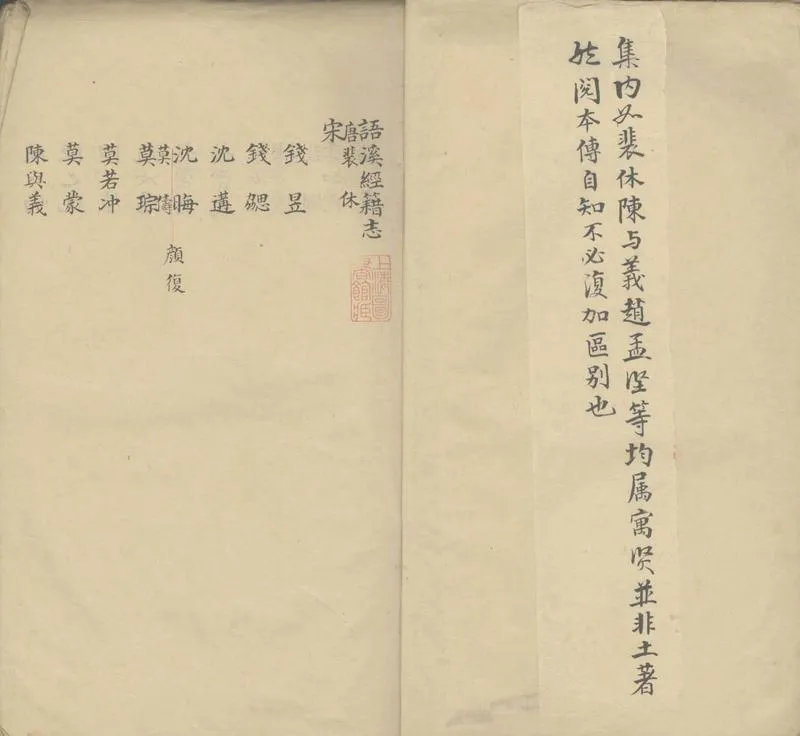 集内如裴休陳与義趙孟坚等均属寓贤並非土著
然閱本傳自知不必復加區别也
語溪經籍志
唐裴休
宋
錢昱
錢勰
沈遘
沈晦
顏復
莫儔
莫琮
莫若冲
莫蒙
陳與義
上海圖書館藏